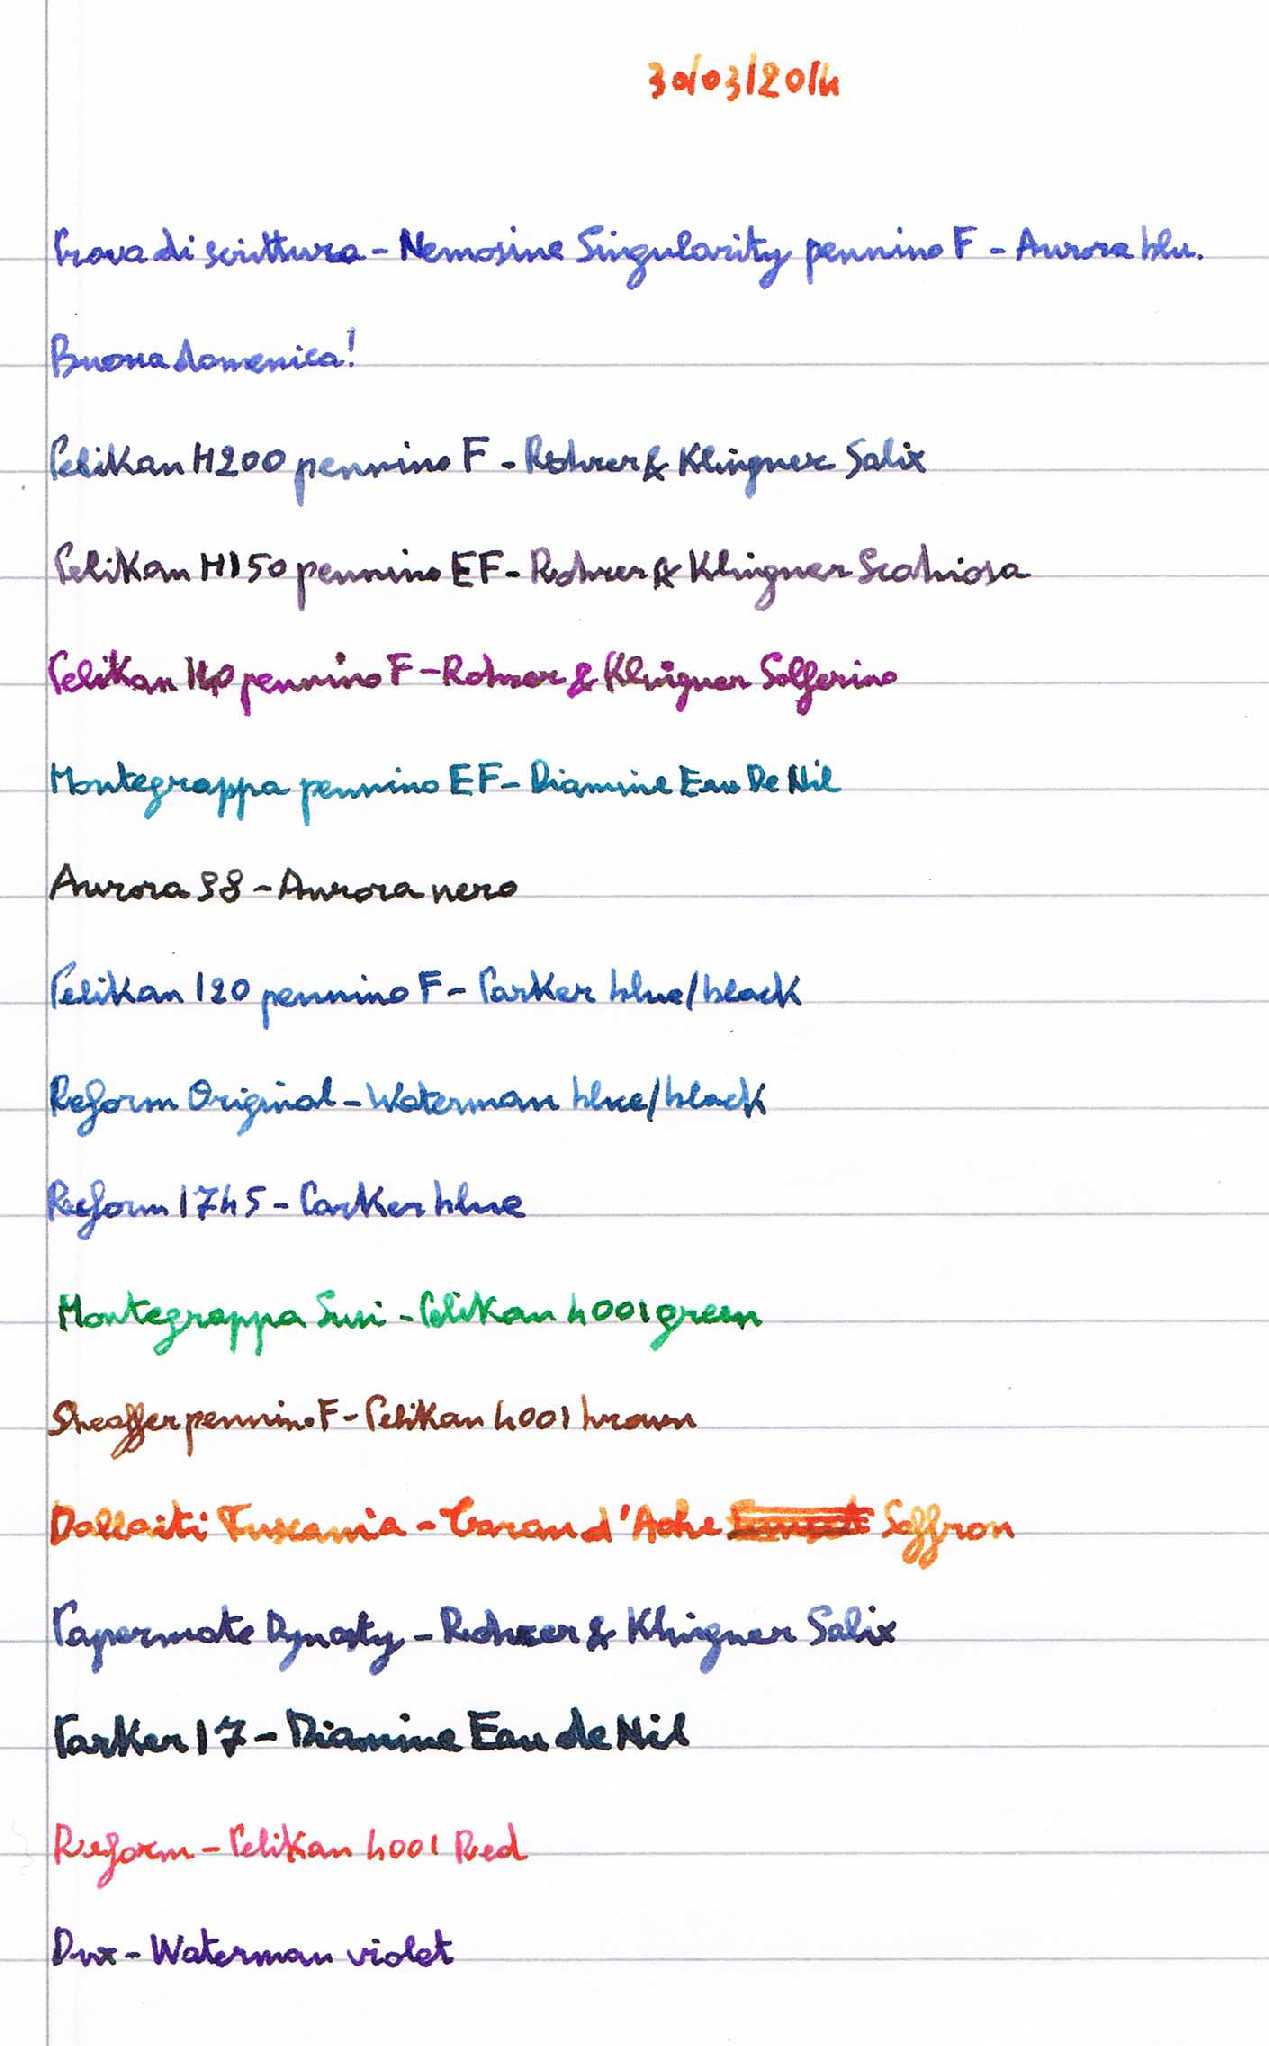 30/03/2014
Prova di scrittura - Nemosine Singularity pennino F - Aurora blu.
Buona domenica!
Pelikan M200 pennino F - Rohrer & Klingner Salix
Pelikan M150 pennino EF - Rohrer & Klingner Scabiosa
Pelikan 140 pennino F - Rohrer & Klingner Solferino
Montegrappa pennino EF - Diamine Eau De Nil
Aurora 98 - Aurora nero
Pelikan 120 pennino F - Parker blue/black
Reform Original - Waterman blue/black
Reform 1745 - Parker blue
Montegrappa Suni - Pelikan 4001 green
Sheaffer pennino F - Pelikan 4001 brown
Dallaiti Tuscania - Caran d'Ache Saffron
Papermate Dynasty - Rohrer & Klingner Salix
Parker 17 - Diamine Eau de Nil
Reform - Pelikan 4001 Red
Dux - Waterman violet